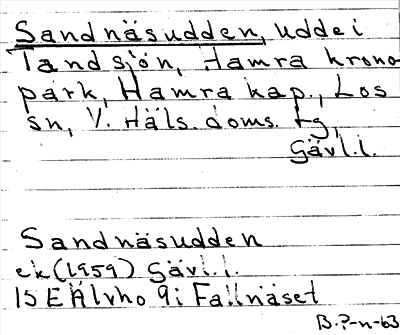 Sandnäsudden, udde i
Tandsjön, Hamra krono
park, Hamra kap., Los
sn, V. Häls. doms. tg,
Gävl.l.
Sandnäsudden
ek (1959) Gävl.l.
15 E Älvho 9i Fallnäset
B.P-n-63